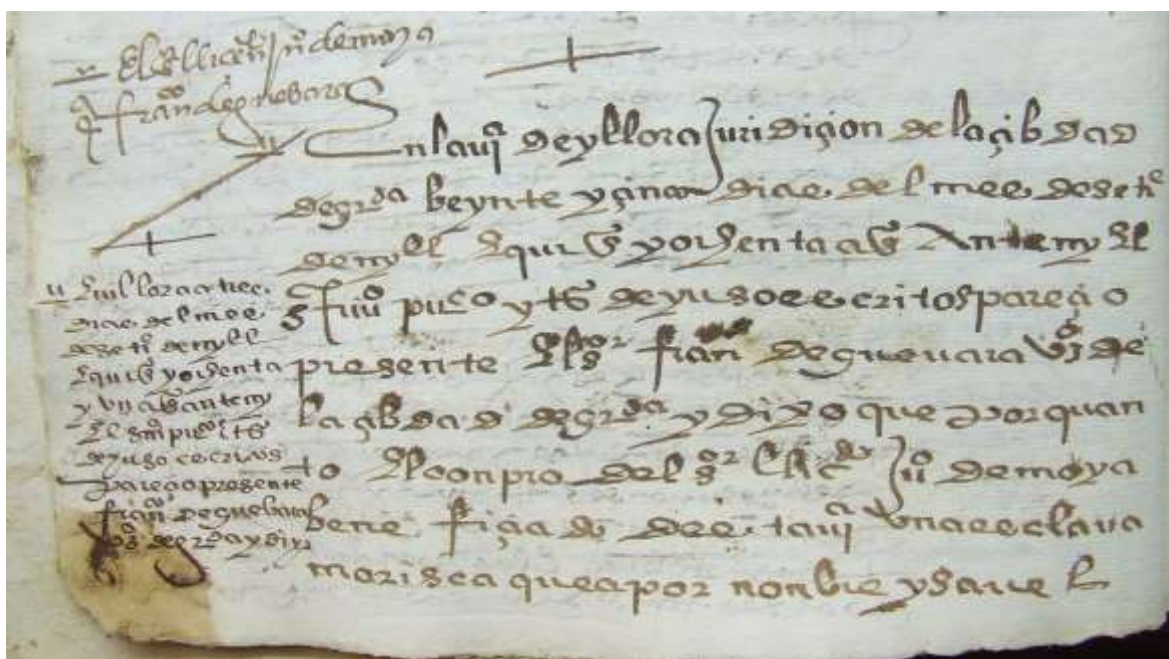 El Sr licendo Jn de moya
franco de guebara
En la va de yllora juridiçion de la çibdad
de grda beynte y çinco dias del mes de sete
de myll e quios y ochenta as Ante my El
s puco y to de yuso escritos pareçio
presente El sor franco de gueuara vo de
la çibdad de grda y dixo que por quan
to El conpro del sor Licdo Ju de moya
benefiçiado desta va vna esclava
morisca que a por nonbre ysavel
En illora a tres
dias del mes
de sete de myll
E quios y ochenta
y vn as ante my
El puco to
de yuso escritos
pareçio presente
franco de guebara
vo de grda y dixo